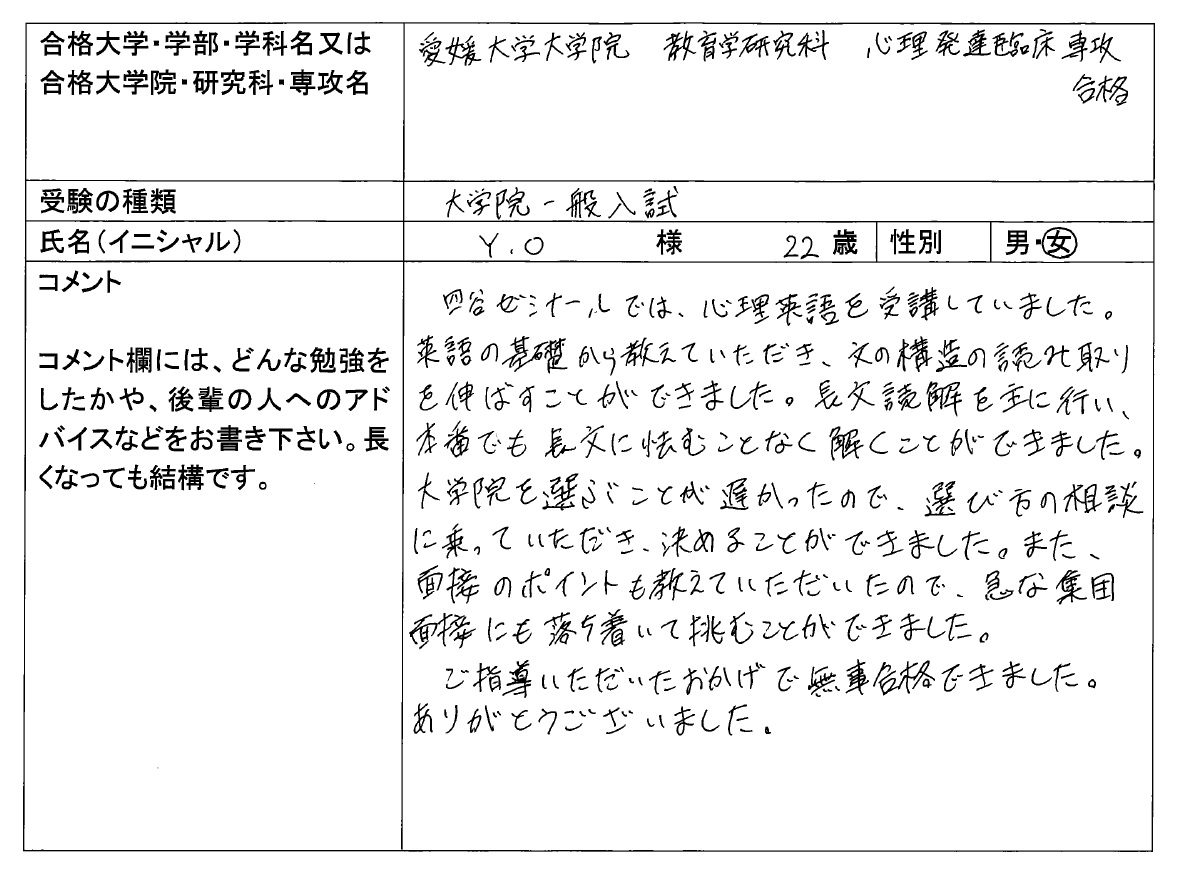 合格大学・学部・学科名又は
合格大学院・研究科・専攻名
愛媛大学大学院 教育学研究科 心理発達臨床専攻
合格
受験の種類
大学院一般入試
氏名(イニシャル)
Y.O 様 22歳 性別 男・女
コメント
コメント欄には、どんな勉強を
したかや、後輩の人へのアド
バイスなどをお書き下さい。長
くなっても結構です。
四谷ゼミナールでは、心理英語を受講していました。
英語の基礎から教えていただき、文の構造の読み取り
を伸ばすことができました。長文読解を主に行い、
本番でも長文に怯むことなく解くことができました。
大学院を選ぶことが遅かったので、選び方の相談
に乗っていただき、決めることができました。また、
面接のポイントも教えていただいたので、急な集団
面接にも落ち着いて挑むことができました。
ご指導いただいたおかげで無事合格できました。
ありがとうございました。